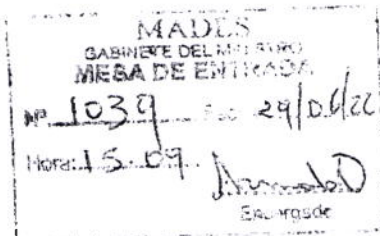 MADES
GABINETE DEL MINISTRO
MESA DE ENTRADA
Nº 1039 Fec 29/06/22
Hora: 15:09
Encargado